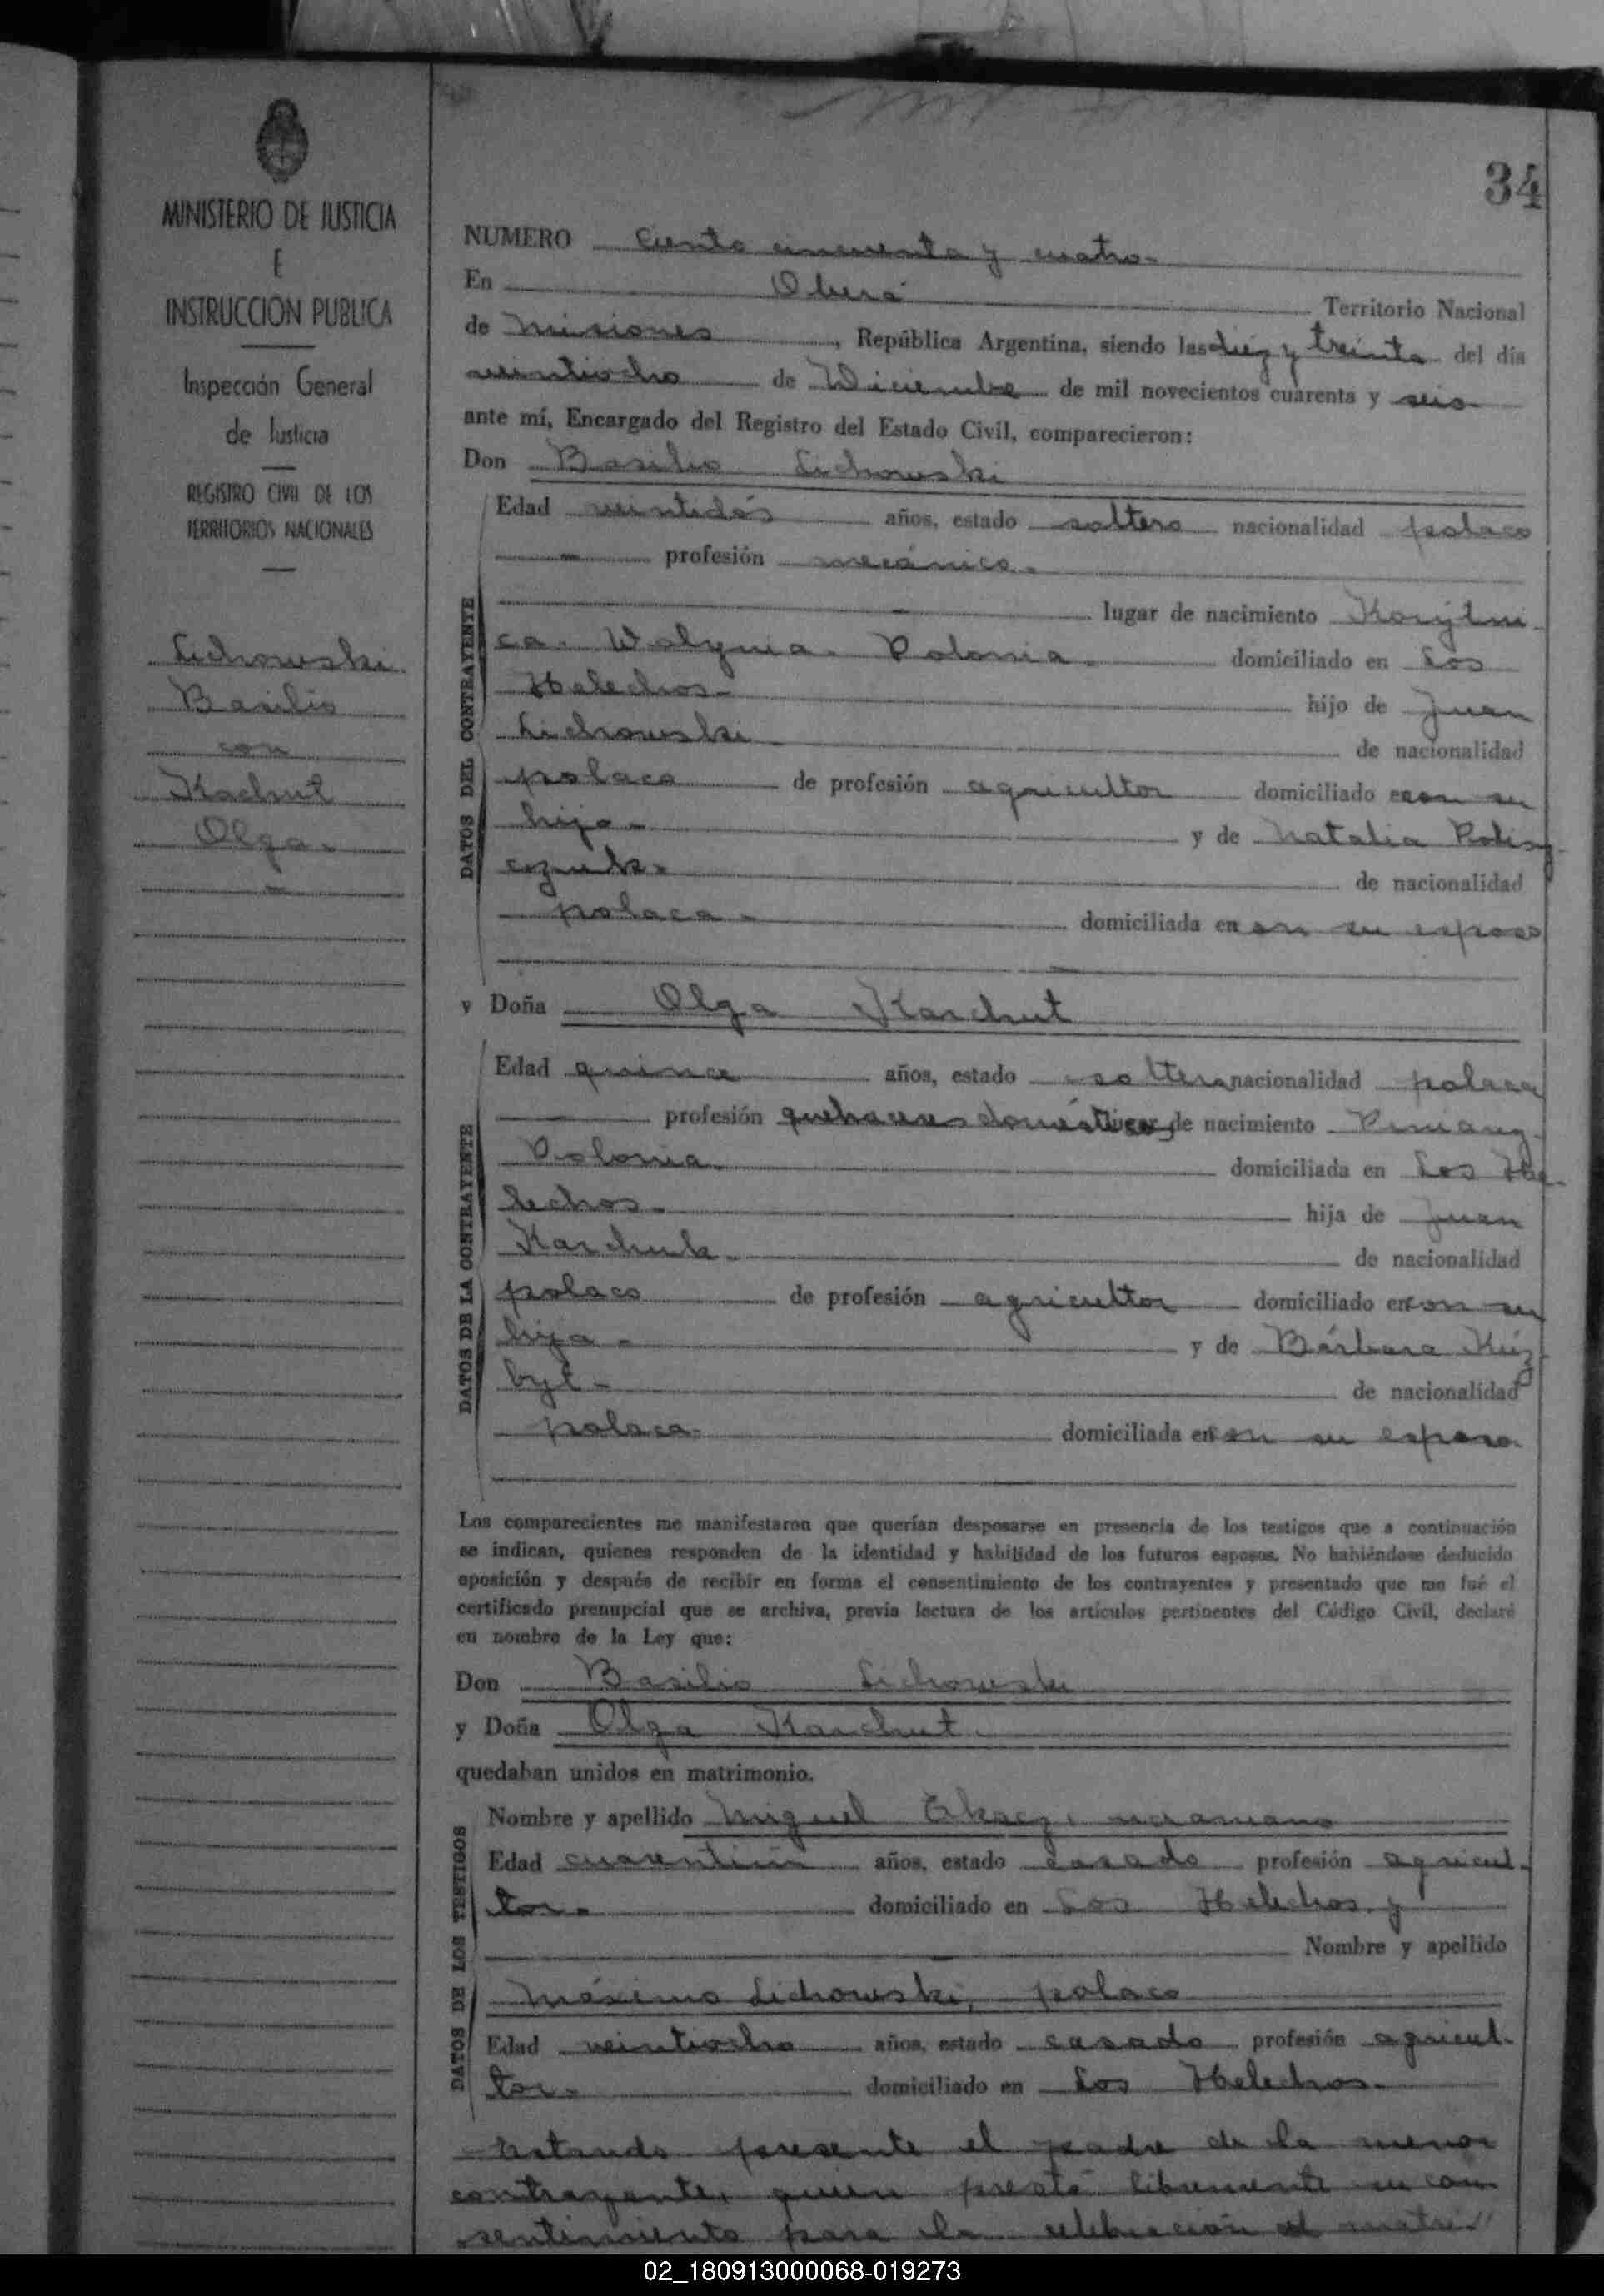 34
MINISTERIO DE JUSTICIA
E
INSTRUCCION PUBLICA
Inspección General
de Justicia
REGISTRO CIVIL DE LOS
TERRITORIOS NACIONALES
Lichowski
Basilio
con
Kachut
Olga.
NUMERO Ciento cincuenta y cuatro-
En Oberá Territorio Nacional
de Misiones, República Argentina, siendo las diez y treinta del día
veintiocho de Diciembre de mil novecientos cuarenta y seis
ante mí, Encargado del Registro del Estado Civil, comparecieron:
Don Basilio Lichowski
DATOS DEL CONTRAYENTE
Edad veintidós años, estado soltero nacionalidad polaco
profesión mecánico.
lugar de nacimiento Korytni
ca. Wolynia. Polonia. domiciliado en Los
Helechos- hijo de Juan
Lichowski de nacionalidad
polaco de profesión agricultor domiciliado con su
hijo- y de Natalia
de nacionalidad
polaca- domiciliada en con su esposo
y Doña Olga Karchut
DATOS DE LA CONTRAYENTE
Edad quince años, estado soltera nacionalidad polaca
profesión quehaceres domésticos lugar de nacimiento
Polonia domiciliada en Los He-
lechos- hija de Juan
Karchuk- de nacionalidad
polaco de profesión agricultor domiciliado en con su
hija- y de Bárbara Kúz
byt- de nacionalidad
polaca- domiciliada en con su esposo
Los comparecientes me manifestaron que querían desposarse en presencia de los testigos que a continuación
se indican, quienes responden de la identidad y habilidad de los futuros esposos. No habiéndose deducido
oposición y después de recibir en forma el consentimiento de los contrayentes y presentado que me fué el
certificado prenupcial que se archiva, previa lectura de los artículos pertinentes del Código Civil, declaré
en nombre de la Ley que:
Don Basilio Lichowski
y Doña Olga Karchut-
quedaban unidos en matrimonio.
DATOS DE LOS TESTIGOS
Nombre y apellido Miguel ucraniano
Edad cuarentiún años, estado casado profesión agricul-
tor- domiciliado en Los Helechos y
Nombre y apellido
Máximo Lichowski, polaco
Edad veintiocho años, estado casado profesión agricul-
tor- domiciliado en Los Helechos-
Estando presente el padre de la menor
contrayente, quien prestó libremente su con
sentimiento para la celebración del matri
02_180913000068-019273